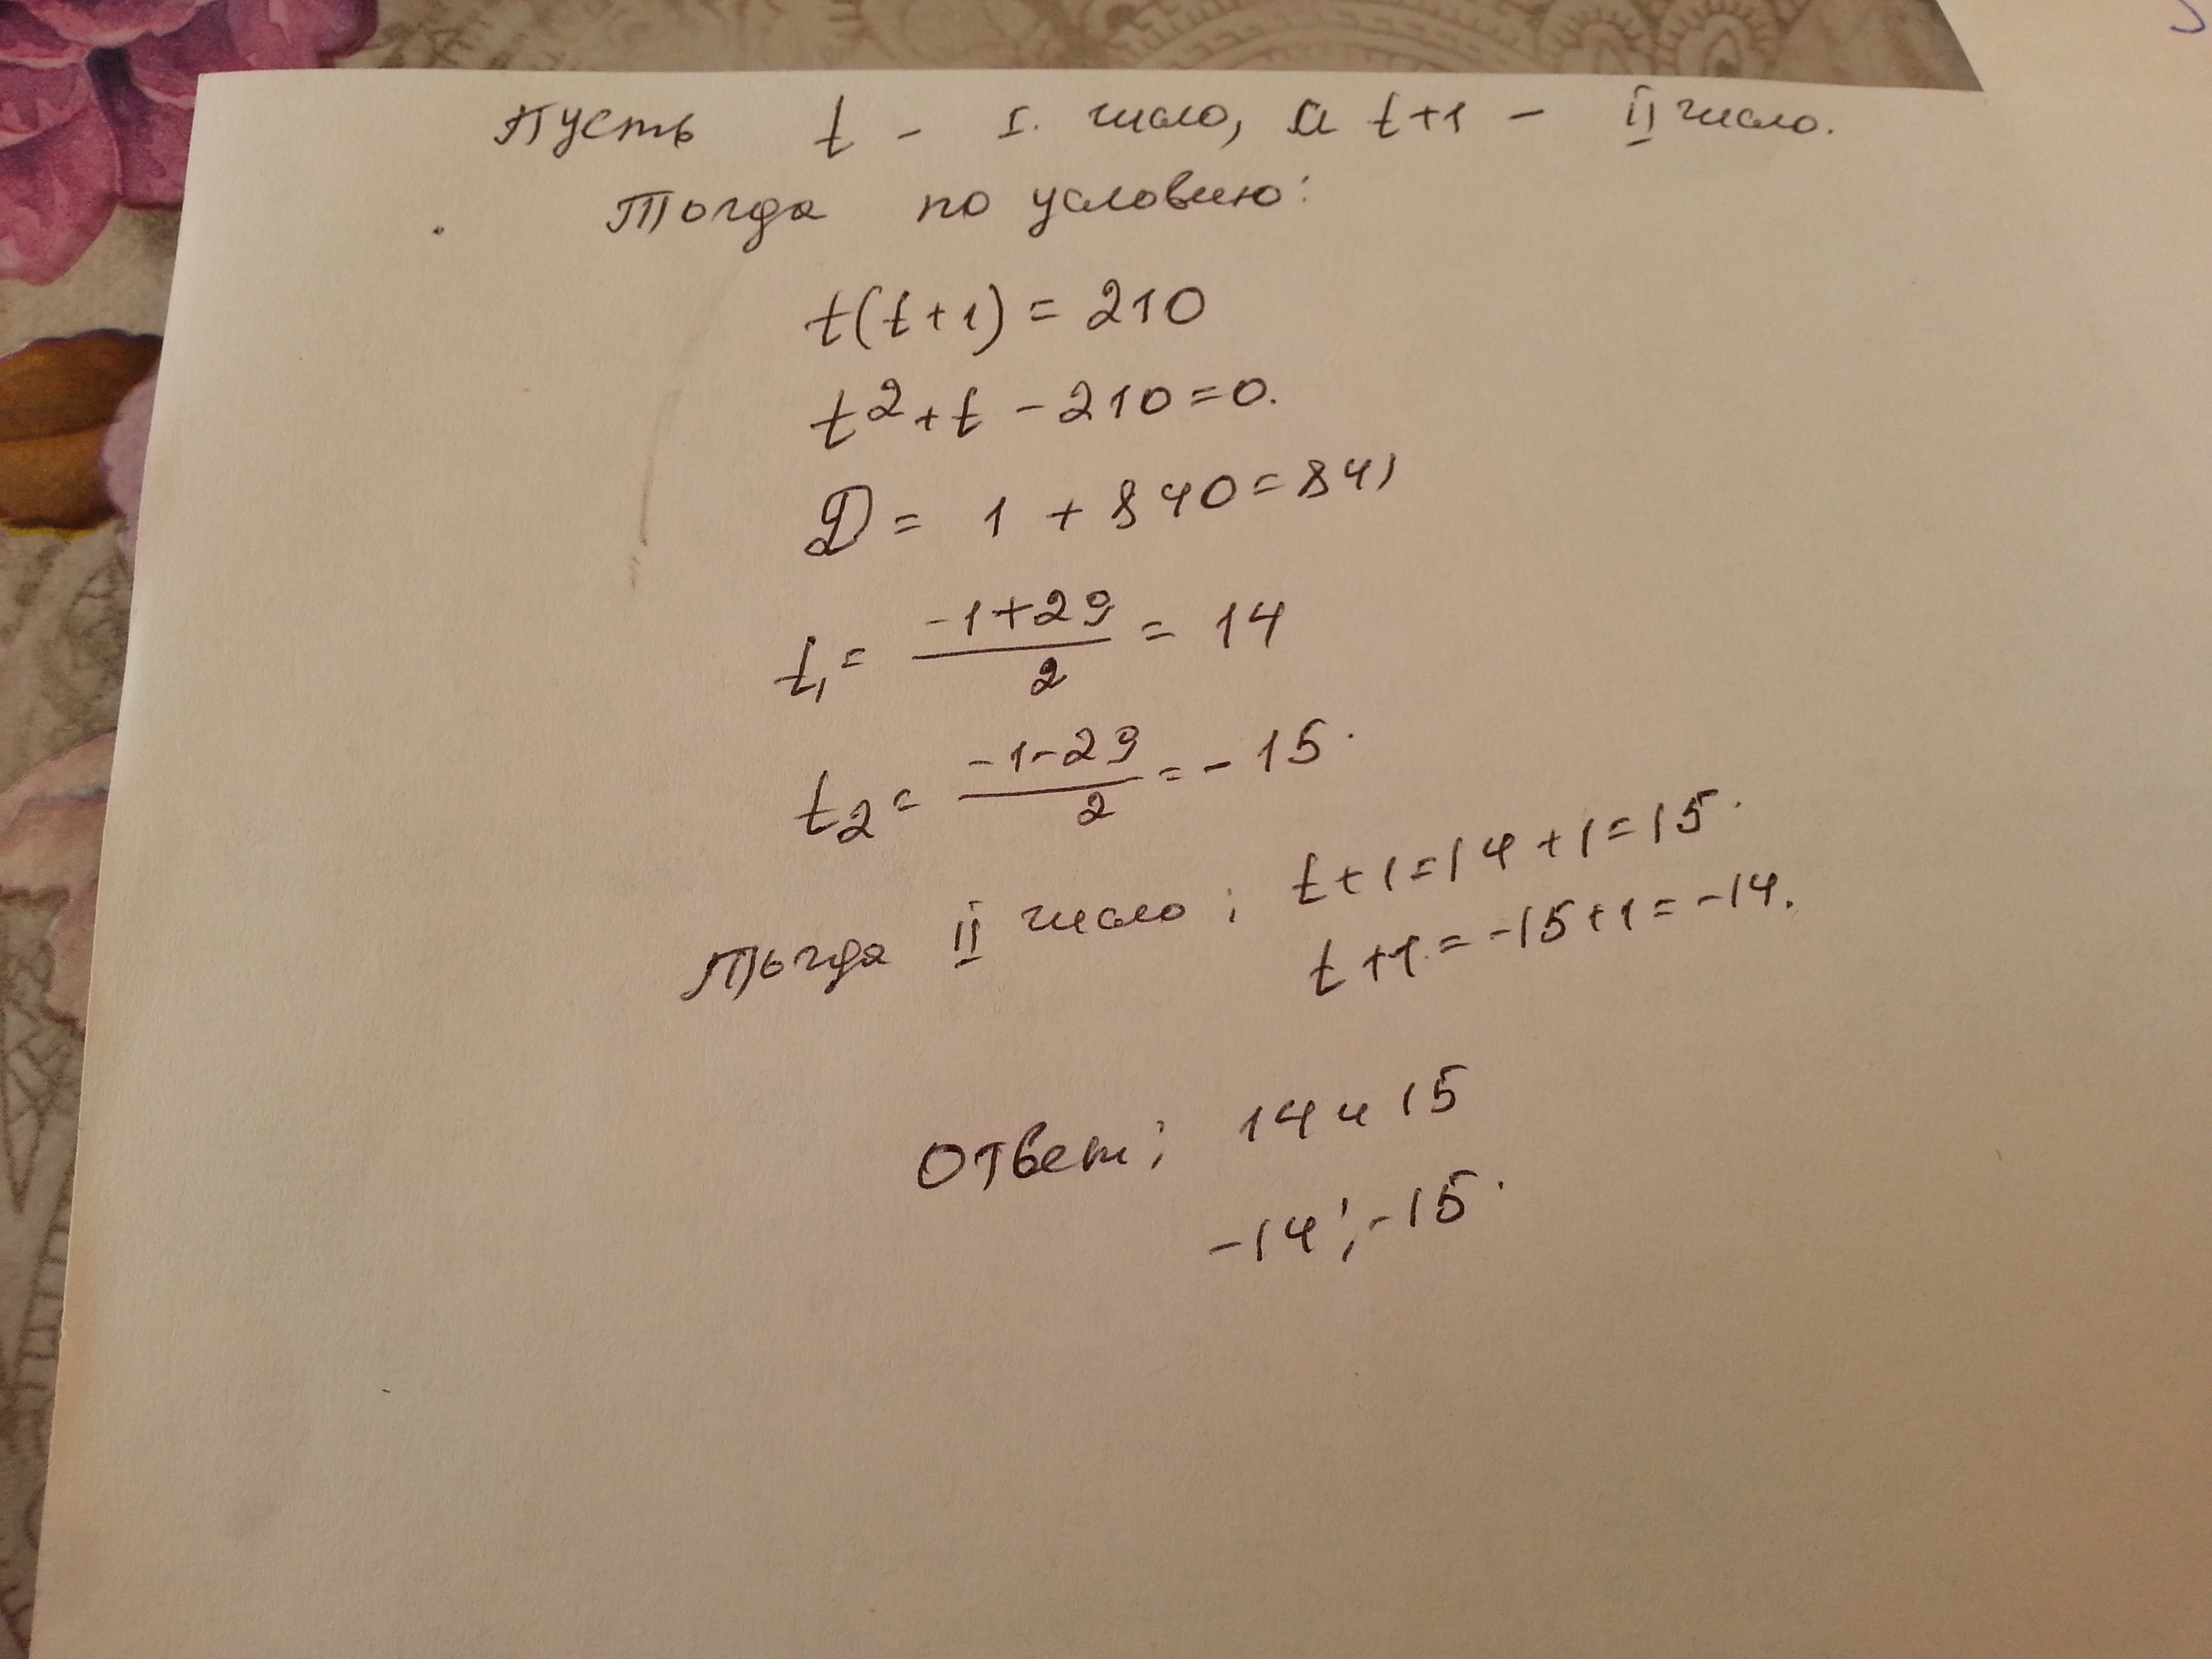 Пусть t - I. число, а t+1 - II число.
Тогда по условию:
t(t+1) = 210
t² + t - 210 = 0.
D = 1 + 840 = 841
t₁ = (-1+29)/2 = 14
t₂ = (-1-29)/2 = -15.
Тогда II число: t+1=14+1=15.
t+1=-15+1=-14.
Ответ: 14 и 15
-14; -15.